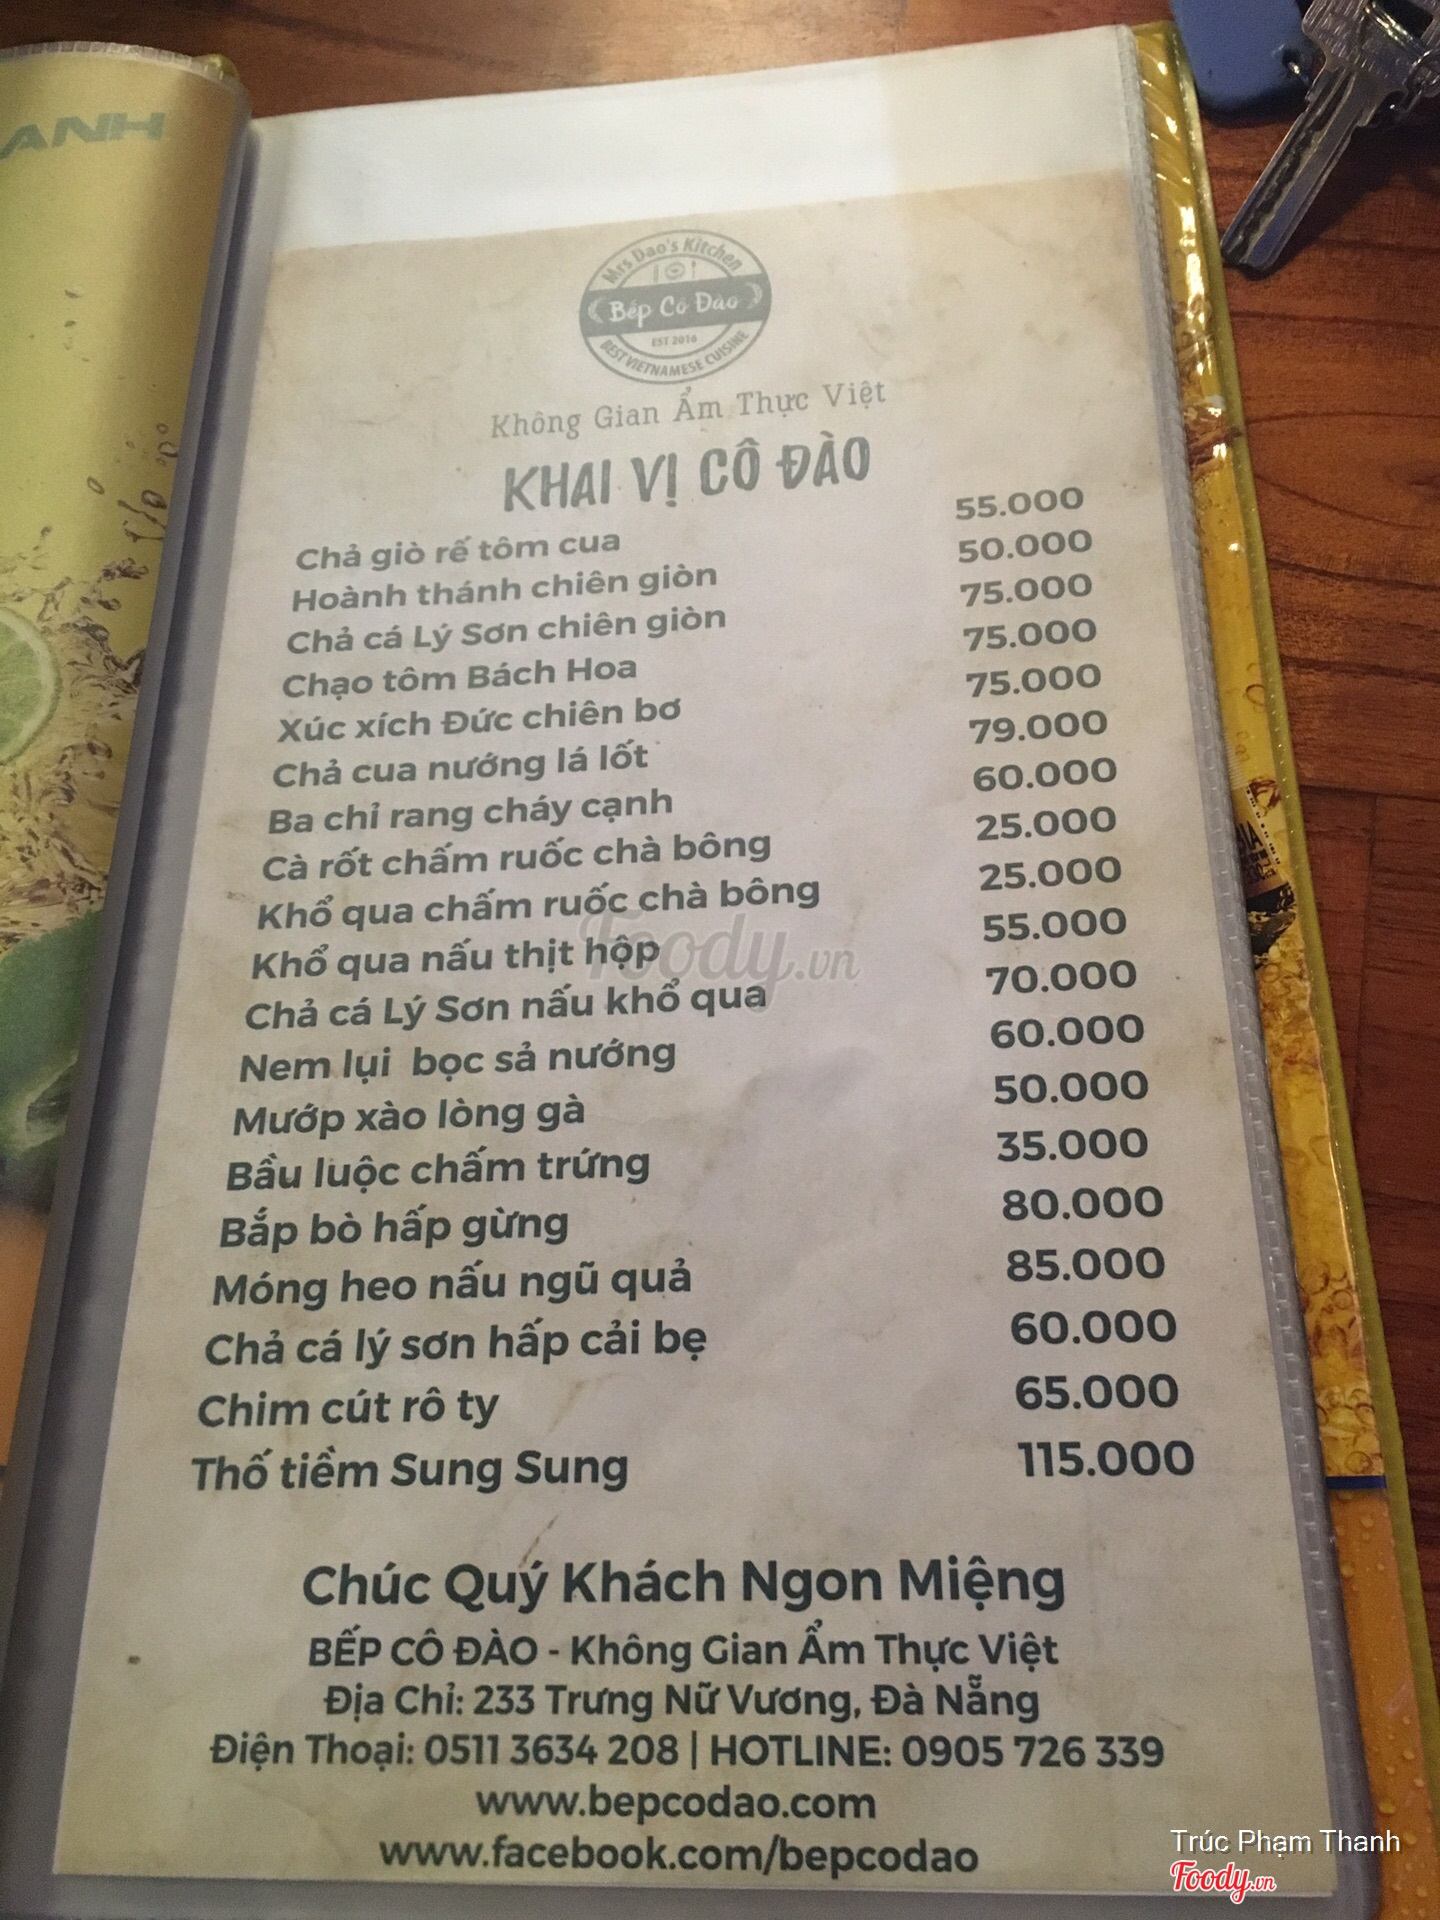 ANH
Mrs Dao's Kitchen
Bếp Cô Đào
EST 2016
BEST VIETNAMESE CUISINE
Không Gian Ẩm Thực Việt
KHAI VỊ CÔ ĐÀO
Chả giò rế tôm cua 55.000
Hoành thánh chiên giòn 50.000
Chả cá Lý Sơn chiên giòn 75.000
Chạo tôm Bách Hoa 75.000
Xúc xích Đức chiên bơ 75.000
Chả cua nướng lá lốt 79.000
Ba chỉ rang cháy cạnh 60.000
Cà rốt chấm ruốc chà bông 25.000
Khổ qua chấm ruốc chà bông 25.000
Khổ qua nấu thịt hộp 55.000
Chả cá Lý Sơn nấu khổ qua 70.000
Nem lụi bọc sả nướng 60.000
Mướp xào lòng gà 50.000
Bầu luộc chấm trứng 35.000
Bắp bò hấp gừng 80.000
Móng heo nấu ngũ quả 85.000
Chả cá lý sơn hấp cải bẹ 60.000
Chim cút rô ty 65.000
Thố tiềm Sung Sung 115.000
Foody.vn
Chúc Quý Khách Ngon Miệng
BẾP CÔ ĐÀO - Không Gian Ẩm Thực Việt
Địa Chỉ: 233 Trưng Nữ Vương, Đà Nẵng
Điện Thoại: 0511 3634 208 | HOTLINE: 0905 726 339
www.bepcodao.com
www.facebook.com/bepcodao
Trúc Phạm Thanh
Foody.vn